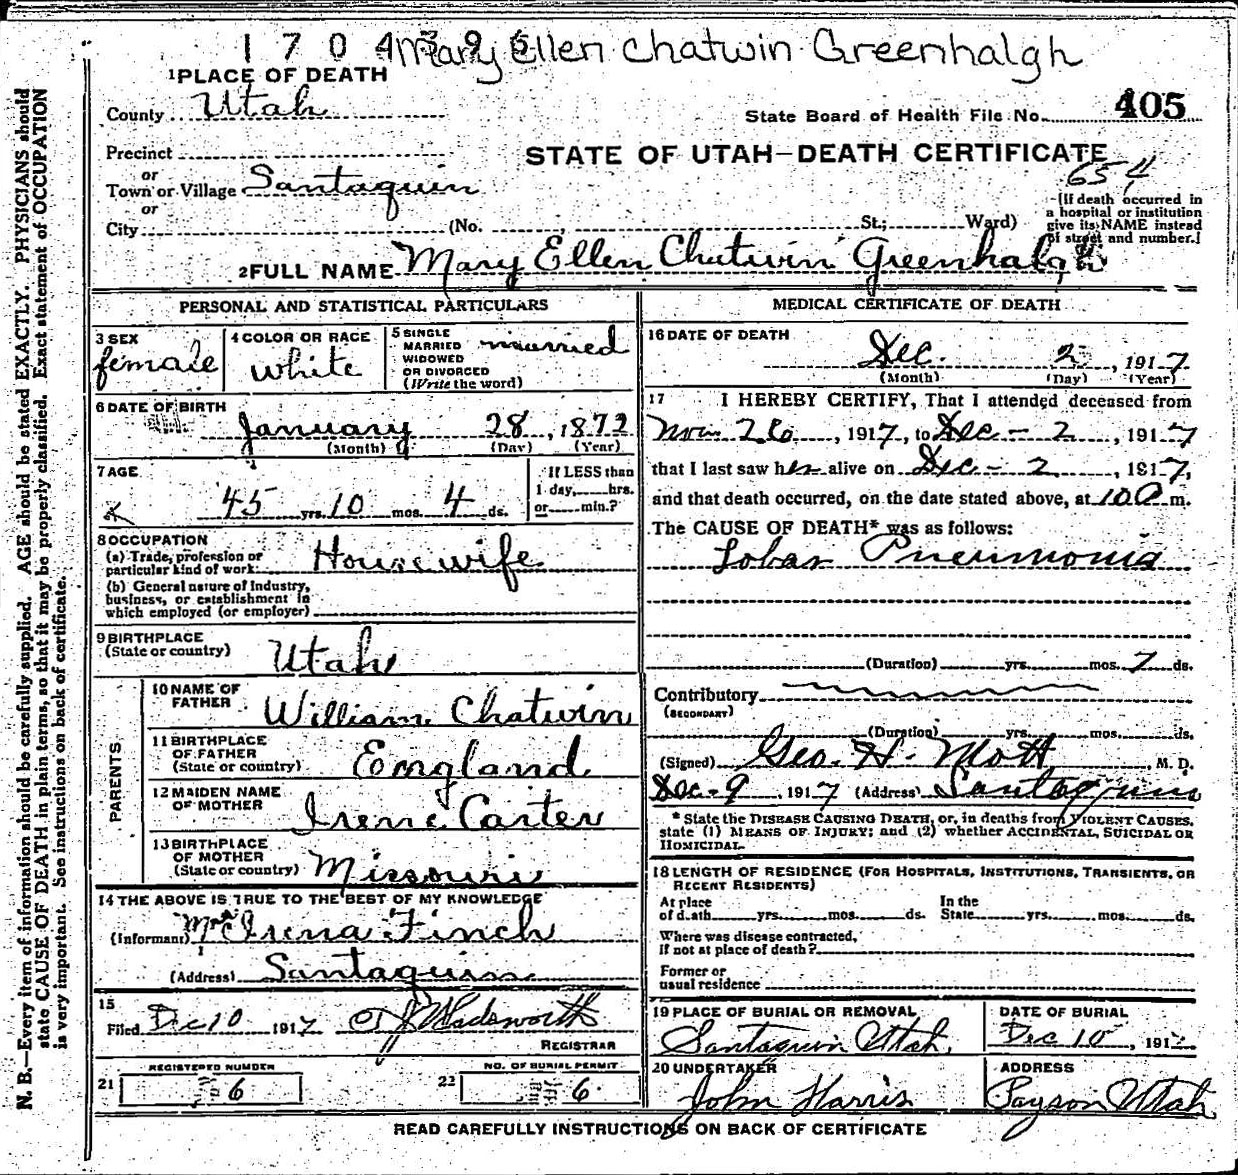 1704395 Mary Ellen Chatwin Greenhalgh
1 PLACE OF DEATH
County Utah
State Board of Health File No. 405
Precinct
STATE OF UTAH—DEATH CERTIFICATE
or
654
Town or Village Santaquin
or
City (No. St.; Ward)
[If death occurred in
a hospital or institution
give its NAME instead
of street and number.]
2 FULL NAME Mary Ellen Chatwin Greenhalgh
PERSONAL AND STATISTICAL PARTICULARS
3 SEX
female
4 COLOR OR RACE
white
5 SINGLE
MARRIED
WIDOWED
OR DIVORCED
(Write the word)
married
6 DATE OF BIRTH
January 28, 1872
(Month) (Day) (Year)
7 AGE
45 yrs. 10 mos. 4 ds.
If LESS than
1 day, hrs.
or min.?
8 OCCUPATION
(a) Trade, profession or
particular kind of work: Housewife
(b) General nature of Industry,
business, or establishment in
which employed (or employer)
9 BIRTHPLACE
(State or country) Utah
PARENTS
10 NAME OF
FATHER William Chatwin
11 BIRTHPLACE
OF FATHER
(State or country) England
12 MAIDEN NAME
OF MOTHER Irene Carter
13 BIRTHPLACE
OF MOTHER
(State or country) Missouri
14 THE ABOVE IS TRUE TO THE BEST OF MY KNOWLEDGE
(Informant) Mrs Irena Finch
(Address) Santaquin
15
Filed Dec 10 1917 Wadsworth
REGISTRAR
REGISTERED NUMBER
21 6
NO. OF BURIAL PERMIT
22 6.
MEDICAL CERTIFICATE OF DEATH
16 DATE OF DEATH
Dec. 2, 1917
(Month) (Day) (Year)
17 I HEREBY CERTIFY, That I attended deceased from
Nov. 26, 1917, to Dec - 2, 1917
that I last saw her alive on Dec - 2, 1917,
and that death occurred, on the date stated above, at 10 a m.
The CAUSE OF DEATH* was as follows:
Lobar Pneumonia
(Duration) yrs. mos. 7 ds.
Contributory
(SECONDARY)
(Duration) yrs. mos. ds.
(Signed) Geo. H. Mott, M. D.
Dec - 9, 1917 (Address) Santaquin
* State the DISEASE CAUSING DEATH, or, in deaths from VIOLENT CAUSES,
state (1) MEANS OF INJURY; and (2) whether ACCIDENTAL, SUICIDAL OR
HOMICIDAL.
18 LENGTH OF RESIDENCE (FOR HOSPITALS, INSTITUTIONS, TRANSIENTS, OR
RECENT RESIDENTS)
At place
of death yrs. mos. ds.
In the
State yrs. mos. ds.
Where was disease contracted,
if not at place of death?
Former or
usual residence
19 PLACE OF BURIAL OR REMOVAL
Santaquin Utah.
DATE OF BURIAL
Dec 10, 1917
20 UNDERTAKER
John Harris
ADDRESS
Payson Utah
READ CAREFULLY INSTRUCTIONS ON BACK OF CERTIFICATE
N. B.—Every item of information should be carefully supplied. AGE should be stated EXACTLY. PHYSICIANS should
state CAUSE OF DEATH in plain terms, so that it may be properly classified. Exact statement of OCCUPATION
is very important. See instructions on back of certificate.